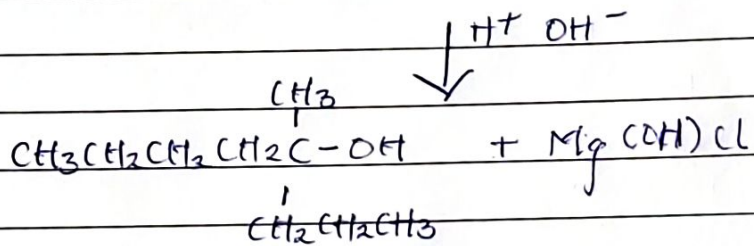 H+ OH-
CH3
CH3CH2CH2CH2C-OH + Mg(OH)Cl
CH2CH2CH3